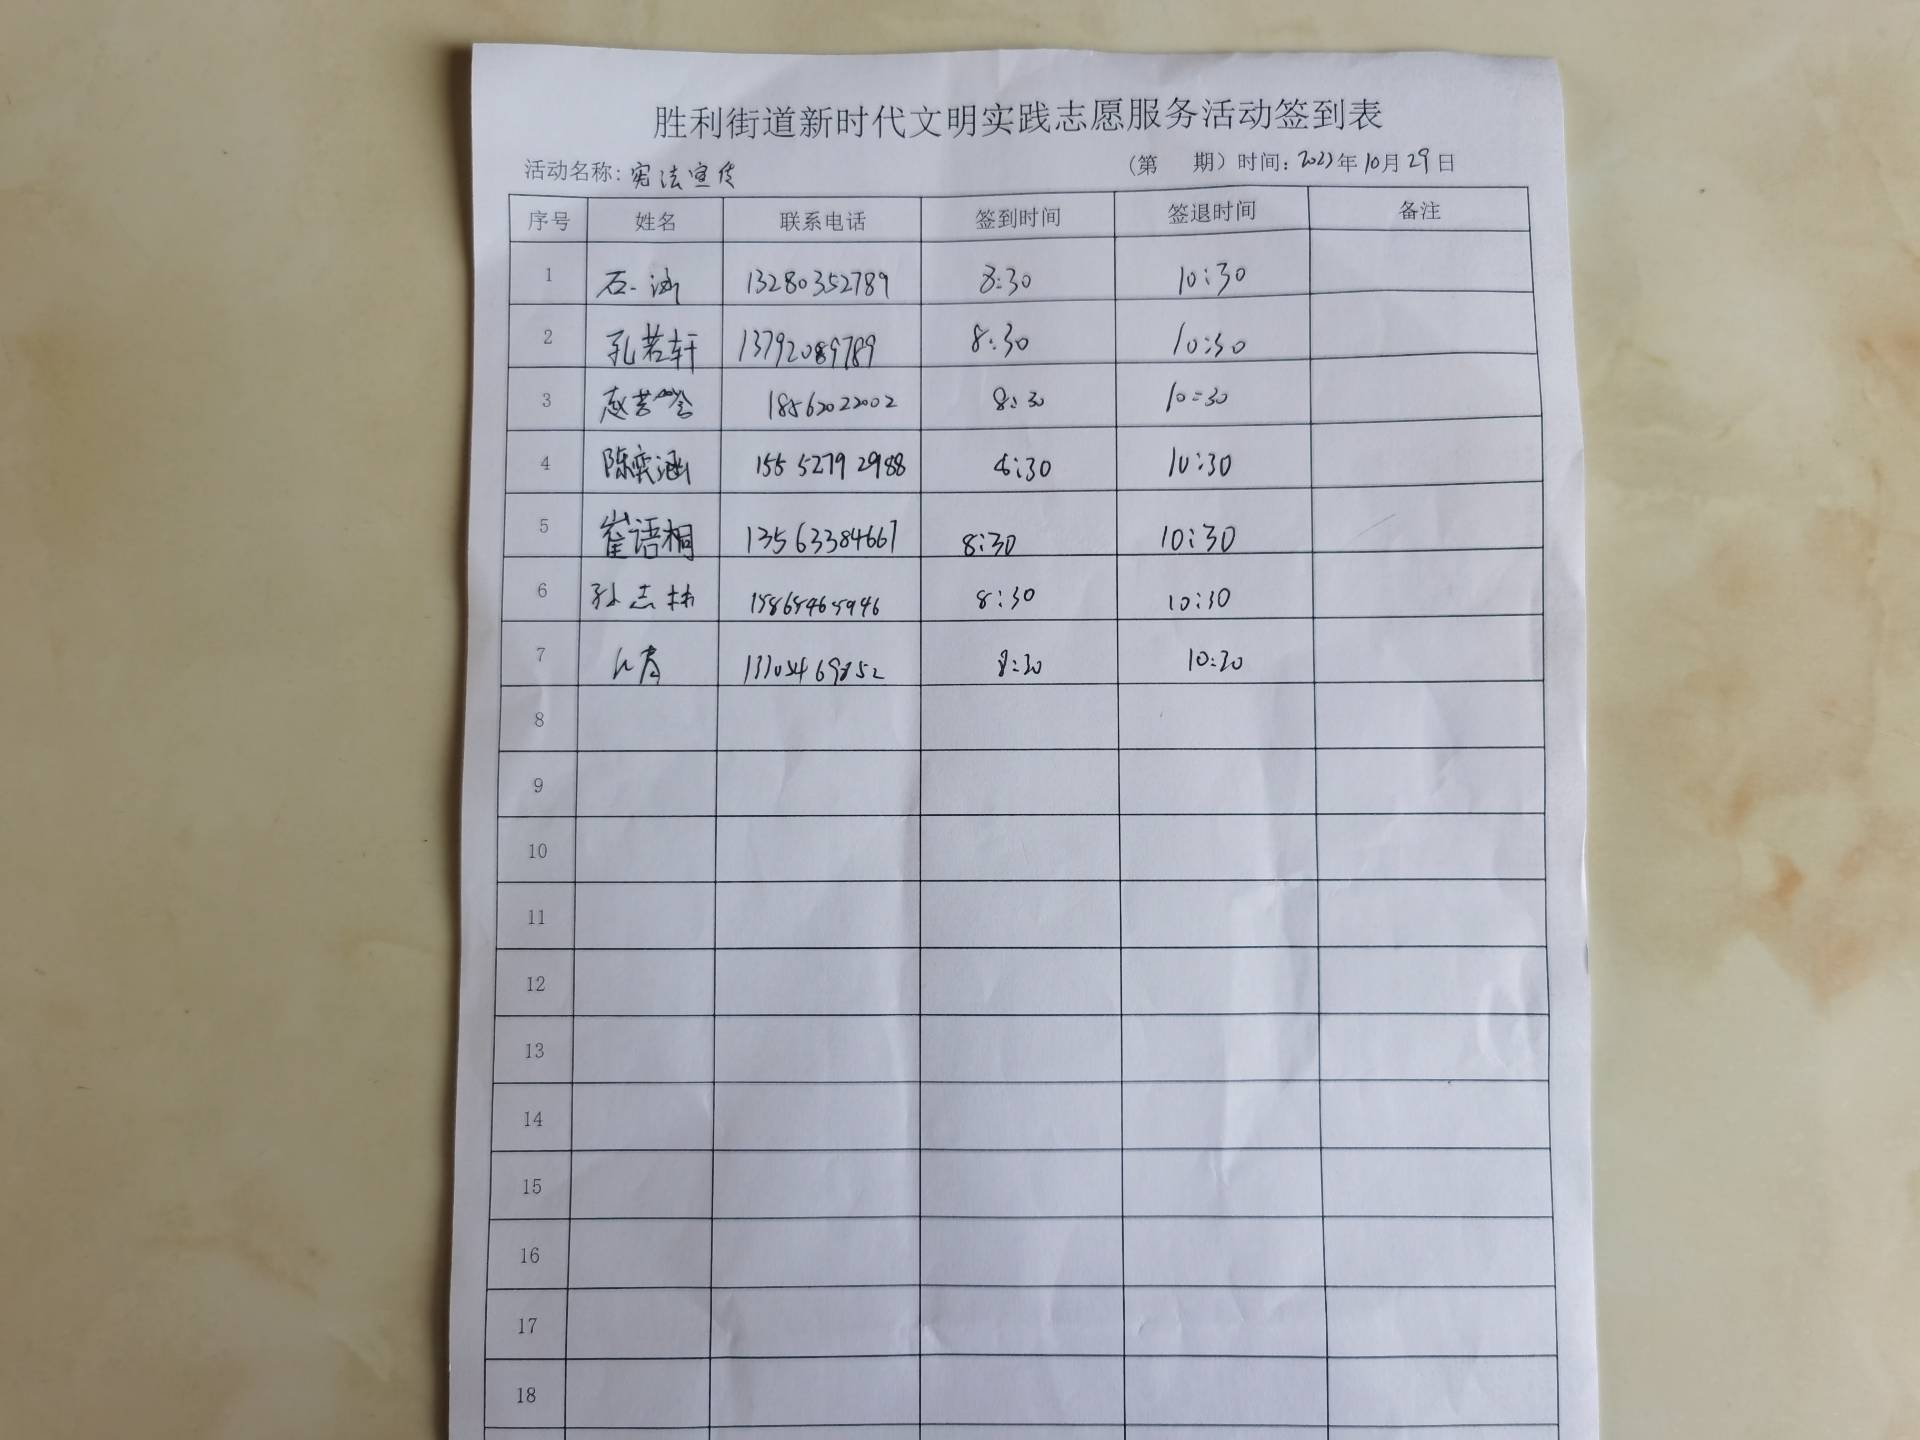 胜利街道新时代文明实践志愿服务活动签到表
活动名称：宪法宣传 （第 期）时间：2023年10月29日
序号 姓名 联系电话 签到时间 签退时间 备注
1 石一涵 13280352789 8:30 10:30
2 孔若轩 13792089789 8:30 10:30
3 18562022002 8:30 10:30
4 陈奕涵 155 5279 2988 8:30 10:30
5 崔语桐 13563384667 8:30 10:30
6 孙志林 15865465946 8:30 10:30
7 8:30 10:30
8
9
10
11
12
13
14
15
16
17
18